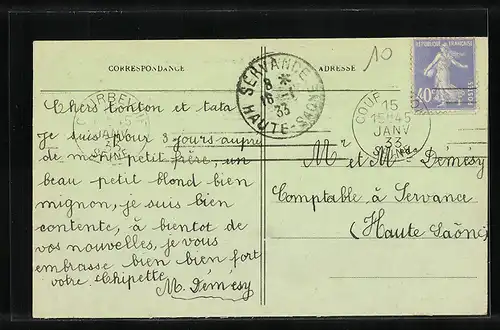 CORRESPONDANCE
ADRESSE
10
REPUBLIQUE FRANCAISE
40c
POSTES
SERVANCE
8 *
16 -1
33
HAUTE-SAONE
COURBEVOIE
JANV
33
SEINE
COUR
15
15H45
JANV
33
SEINE
Chers tonton et tata
Je suis pour 3 jours aupre
de mon petit frère, un
beau petit blond bien
mignon, je suis bien
contente, à bientot de
vos nouvelles, je vous
embrasse bien bien fort
votre Chipette
M. Démésy
Mr et M Démésy
Comptable à Servance
(Haute Saône)